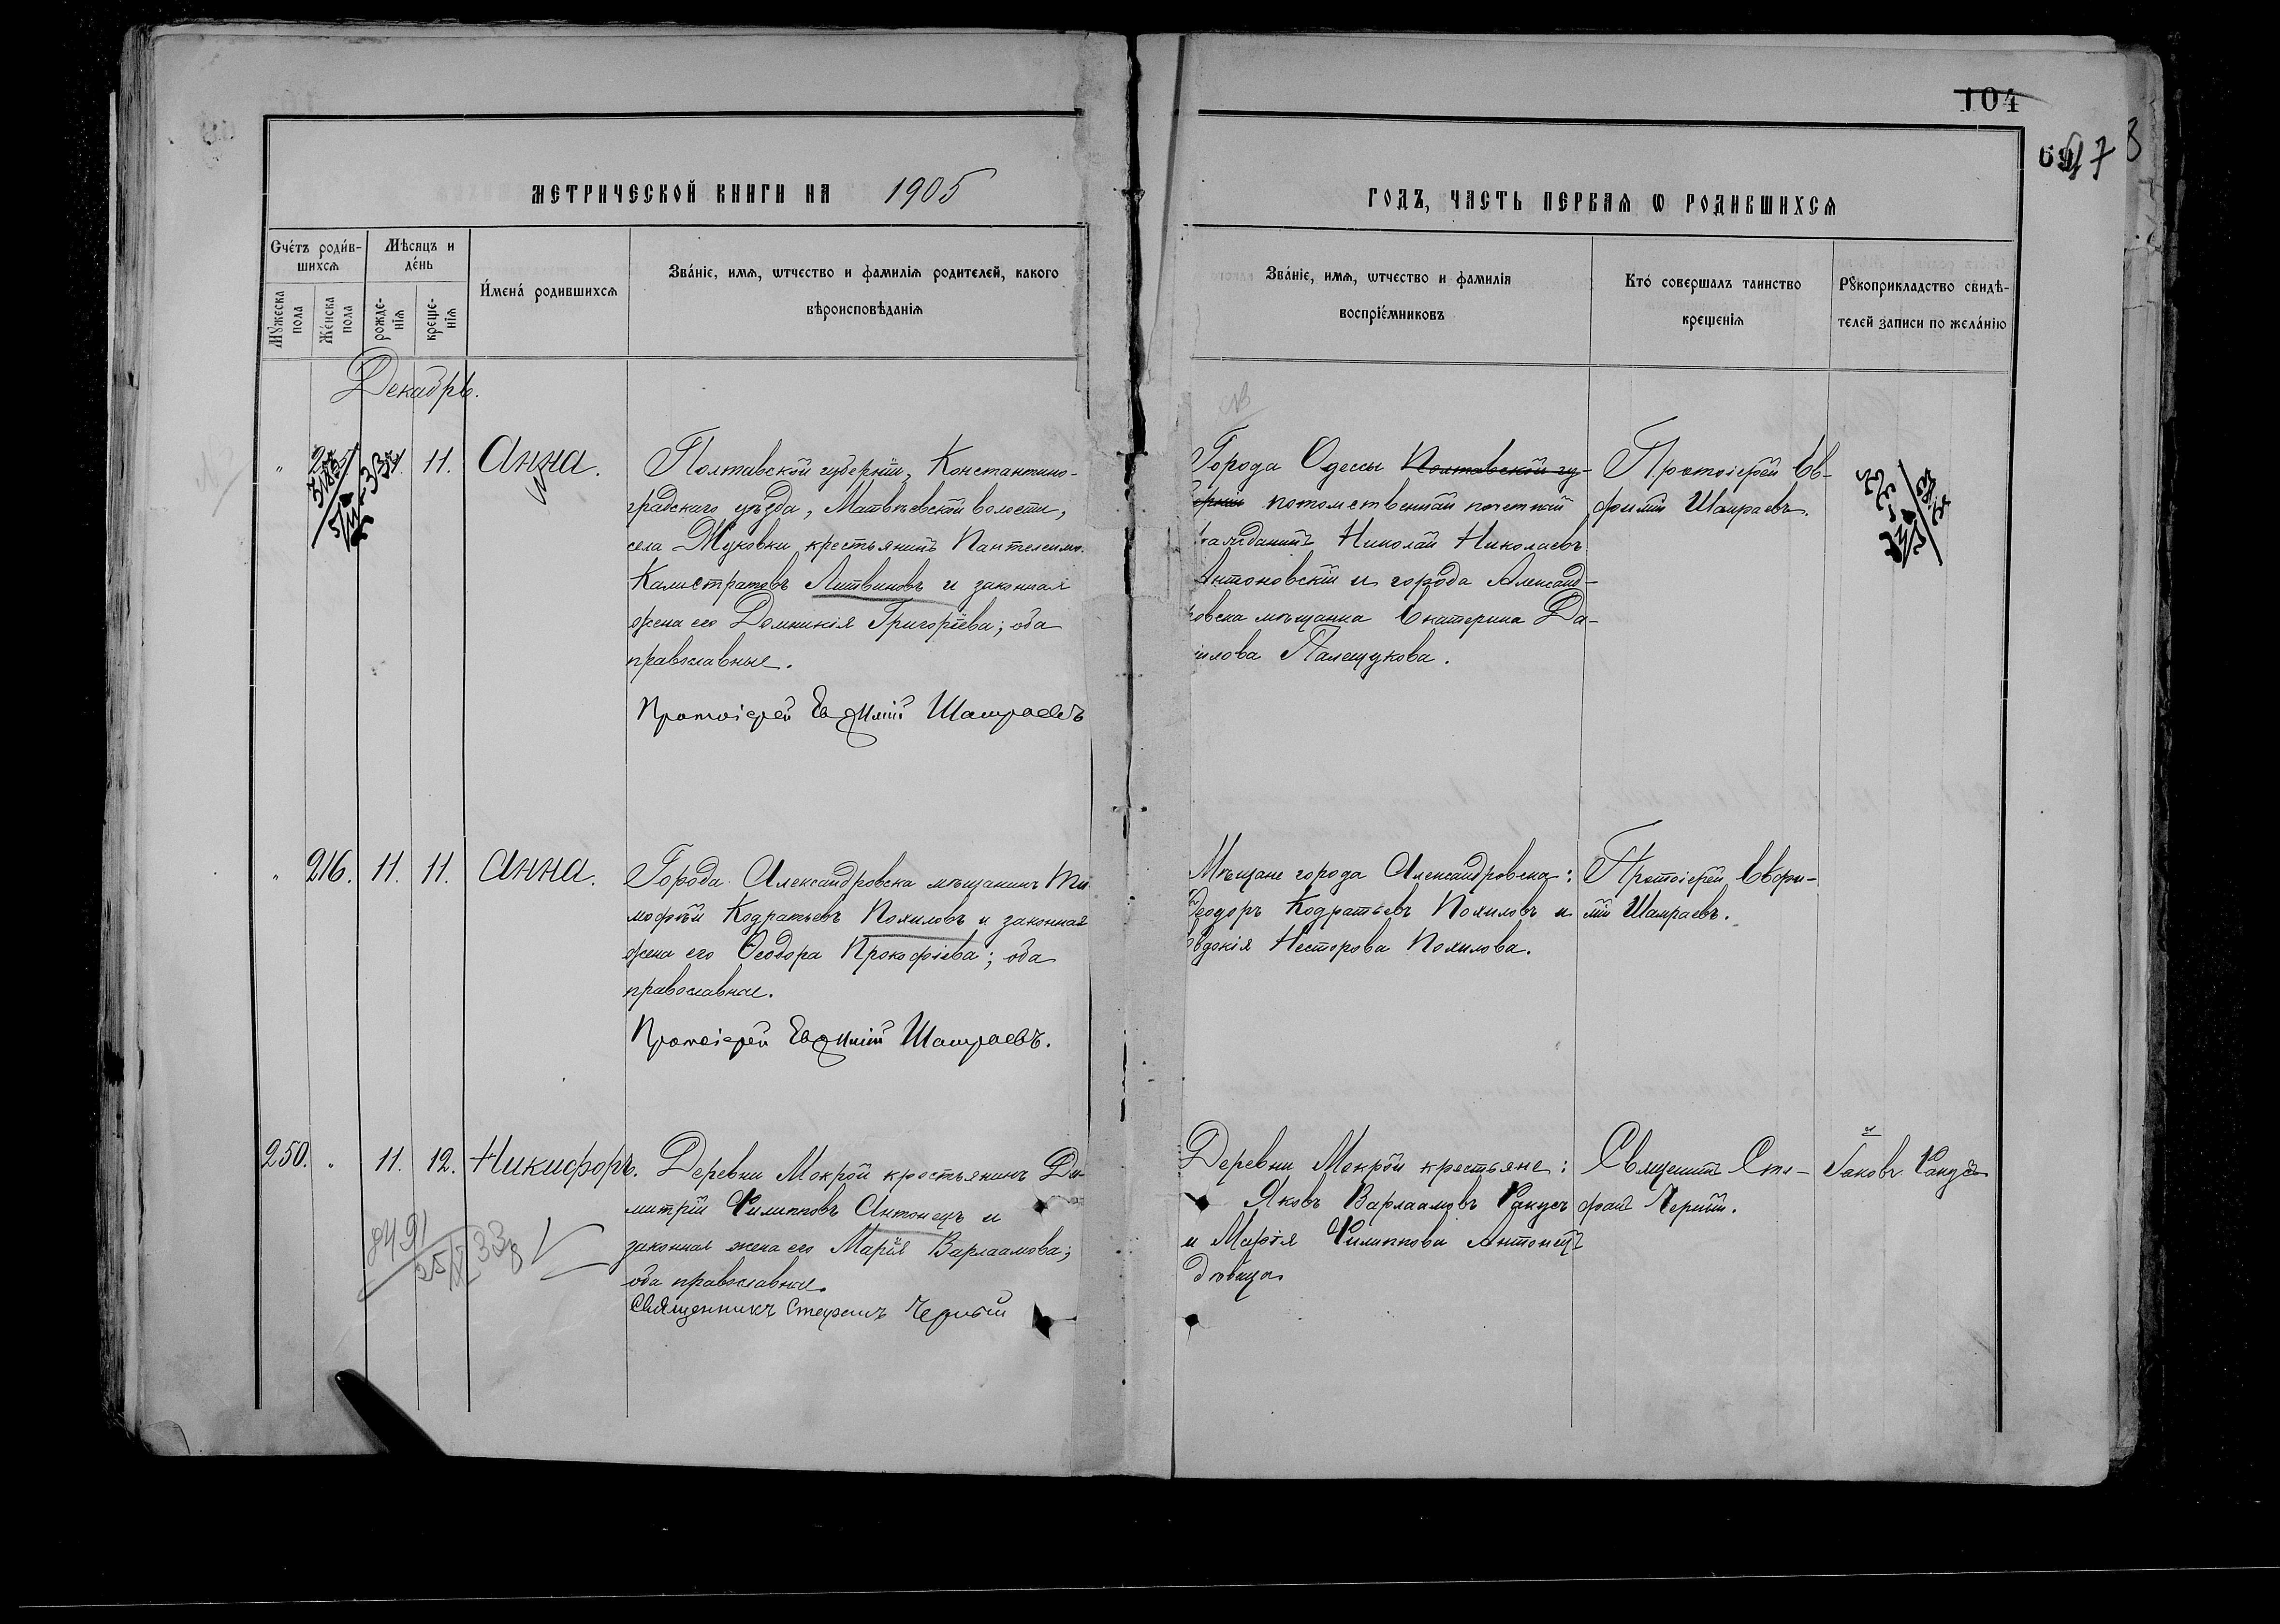 104
МЕТРИЧЕСКОЙ КНИГИ НА 1905
ГОДЪ, ЧАСТЬ ПЕРВАЯ Ѡ РОДИВШИХСЯ
Счетъ родив-
шихся
Мѣсяцъ и
день
Мꙋжеска
пола
Женска
пола
рожде-
нія
креще-
нія
Имена родившихся
Званіе, имя, ѡтчество и фамилія родителей, какого
вѣроисповѣданія
Званіе, имя, ѡтчество и фамилія
воспріемниковъ
Кто совершалъ таинство
крещенія
Рꙋкоприкладство свидѣ-
телей записи по желанію
Декабрь.
" 11. Анна.
Полтавской губерніи, Константино-
градскаго уѣзда, Матвѣевской волости,
села Жуковки крестьянинъ Пантелеимо.
Калистратовъ Литвиновъ и законная
жена его Домникія Григоріева; оба
православные.
Протоіерей Евѳимій Шамраевъ
Города Одессы Полтавской гу-
берніи потомственный почетный
гражданинъ Николай Николаевъ
Антоновскій и города Александ-
ровска мѣщанка Екатерина Да-
илова Палещукова.
Протоіерей Ев-
фимій Шамраевъ.
" 216. 11. 11. Анна.
Города Александровска мѣщанинъ Ти
мофей Кодратьевъ Похиловъ и законная
жена его Ѳеодора Прокофіева; оба
православные.
Протоіерей Евѳимій Шамраевъ.
Мѣщане города Александровска:
Ѳеодоръ Кодратьевъ Похиловъ и
Евдокія Несторова Похилова.
Протоіерей Евфи-
мій Шамраевъ.
250. " 11. 12. Никифоръ.
Деревни Мокрой крестьянинъ Ди-
митрій Филипповъ Антонецъ и
законная жена его Марія Варлаамова;
оба православные.
Священникъ Стефанъ Черный
8491
Деревни Мокрой крестьяне:
Яковъ Варлаамовъ Ганусъ
и Марія Филиппова Антонецъ
дѣвица
Священникъ Сте-
фанъ Черный.
Іаковъ Ганусъ